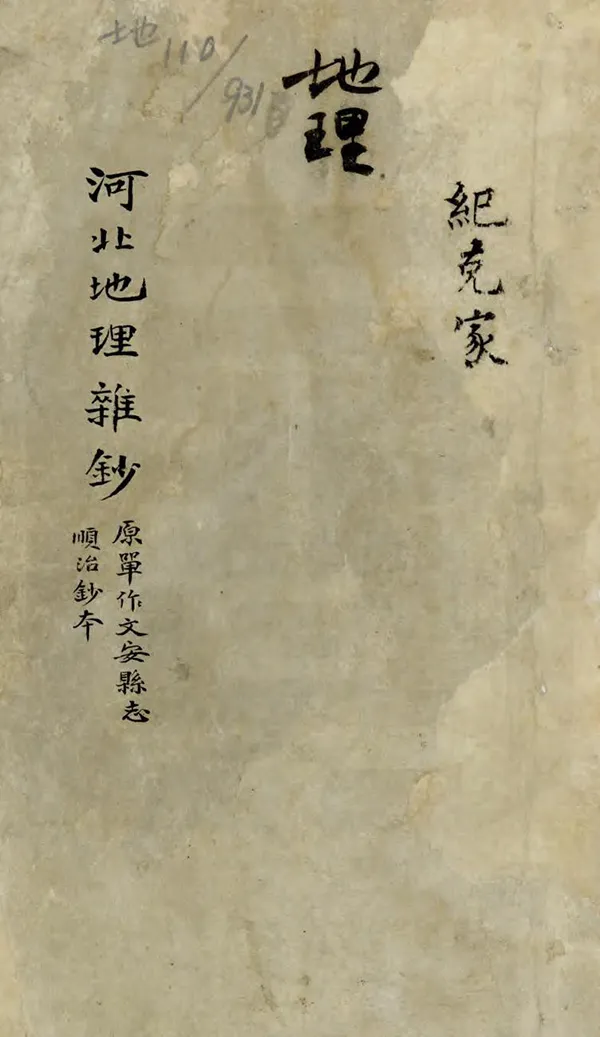 地110/931
地理
紀克家
河北地理雜鈔
原單作文安縣志
順治鈔本